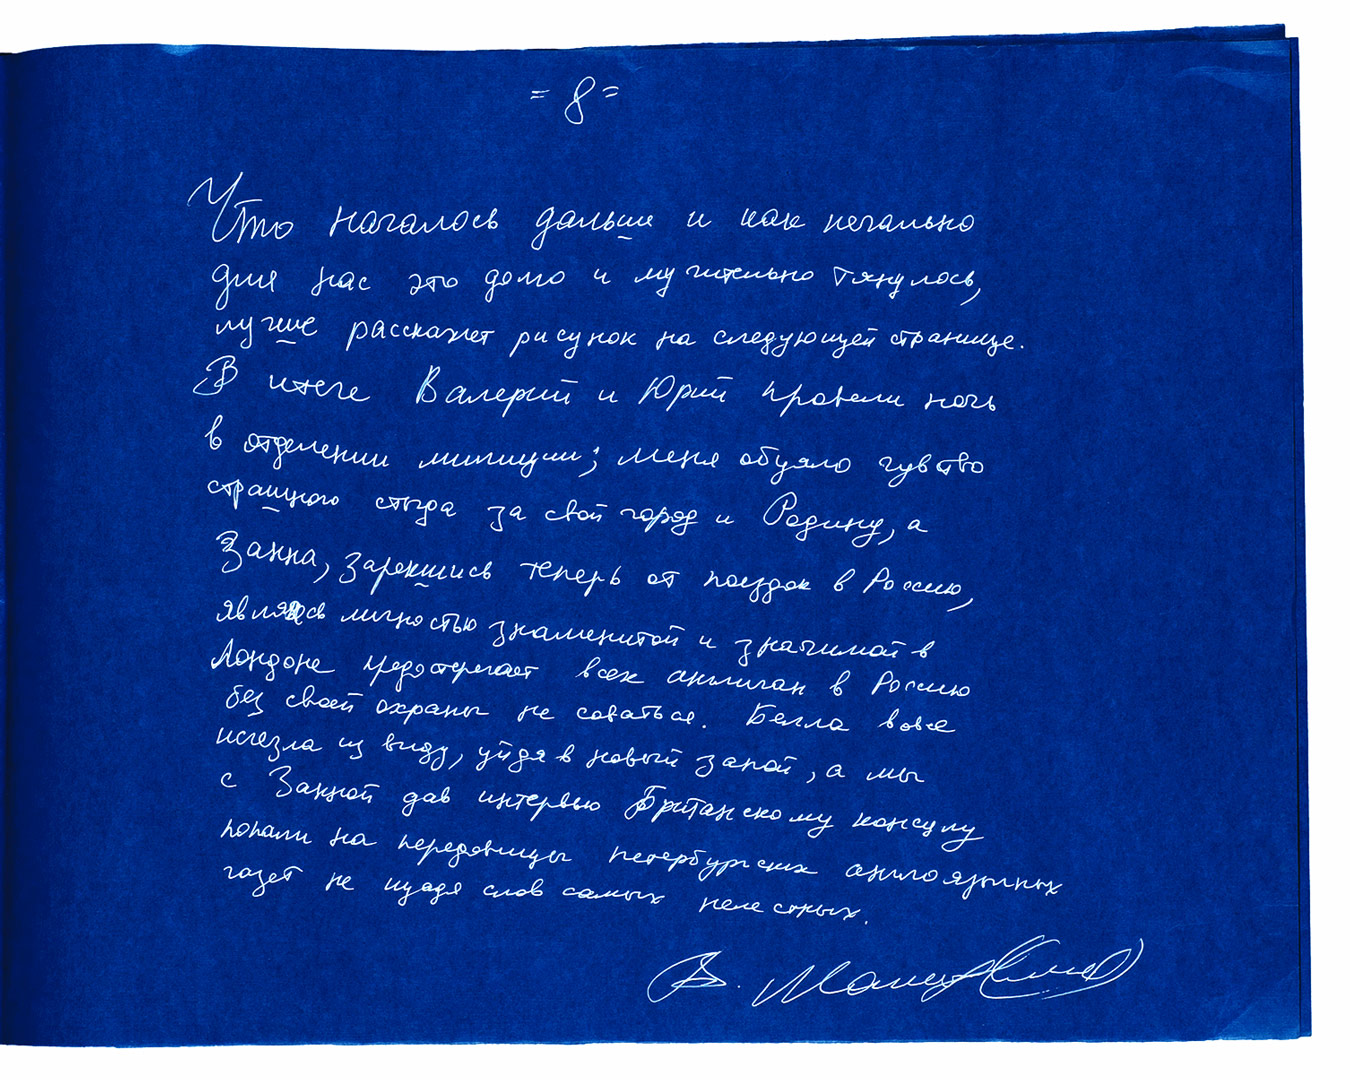 = 8 =
Что началось дальше и как печально
для нас это долго и мучительно тянулось,
лучше расскажет рисунок на следующей странице.
В итоге Валерий и Юрий провели ночь
в отделении милиции; меня обуяло чувство
страшного стыда за свой город и Родину, а
Занна, зарекшись теперь от поездок в Россию,
являясь личностью знаменитой и значимой в
Лондоне предостерегает всех англичан в Россию
без своей охраны не соваться. Белла вовсе
исчезла из виду, уйдя в новый запой, а мы
с Занной дав интервью Британскому консулу
попали на передовицы петербургских англоязычных
газет не щадя слов самых нелестных.
В.